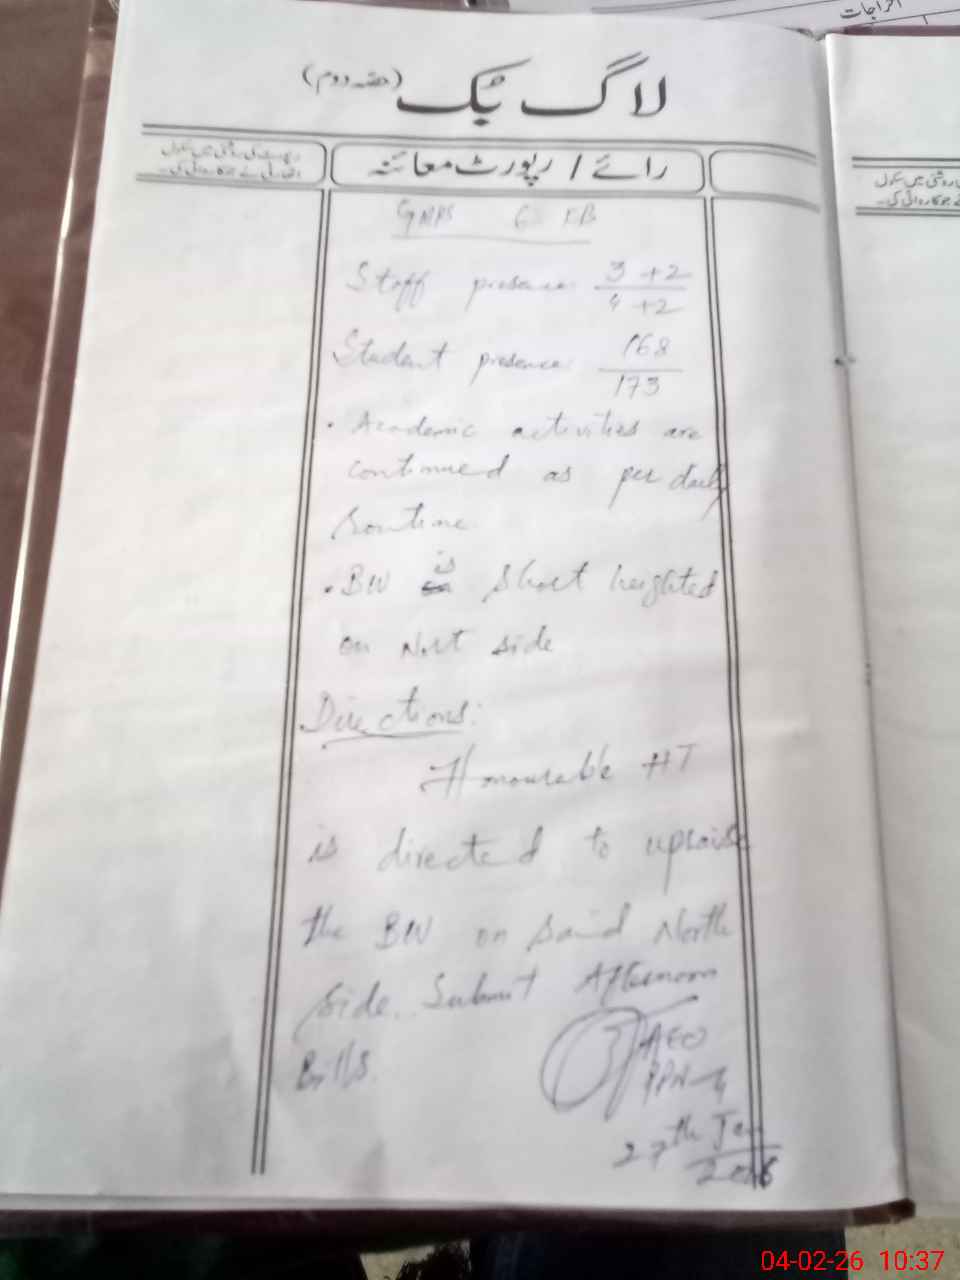 اخراجات
لاگ بک (حصہ دوم)
رائے / رپورٹ معائنہ
6 FB
Staff presence: 3+2 / 4+2
Student presence: 168 / 173
• Academic activities are
continued as per daily
routine
• BW is short heighted
on Nort side
Directions:
Honourable HT
is directed to upraise
the BW on said North
side. Submit Afternoon
Bills.
AEO
27th Jan
2026
04-02-26 10:37